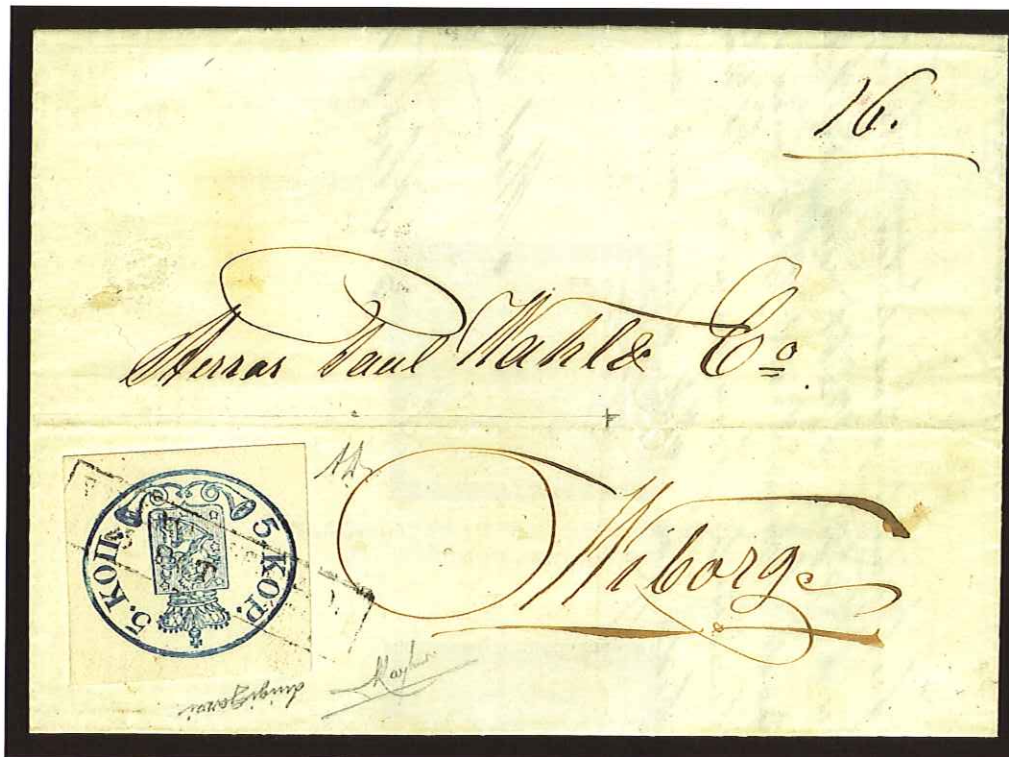 16.
Herrar Paul Wahl & Co
Wiborg
5. КОП. 5. KOP.